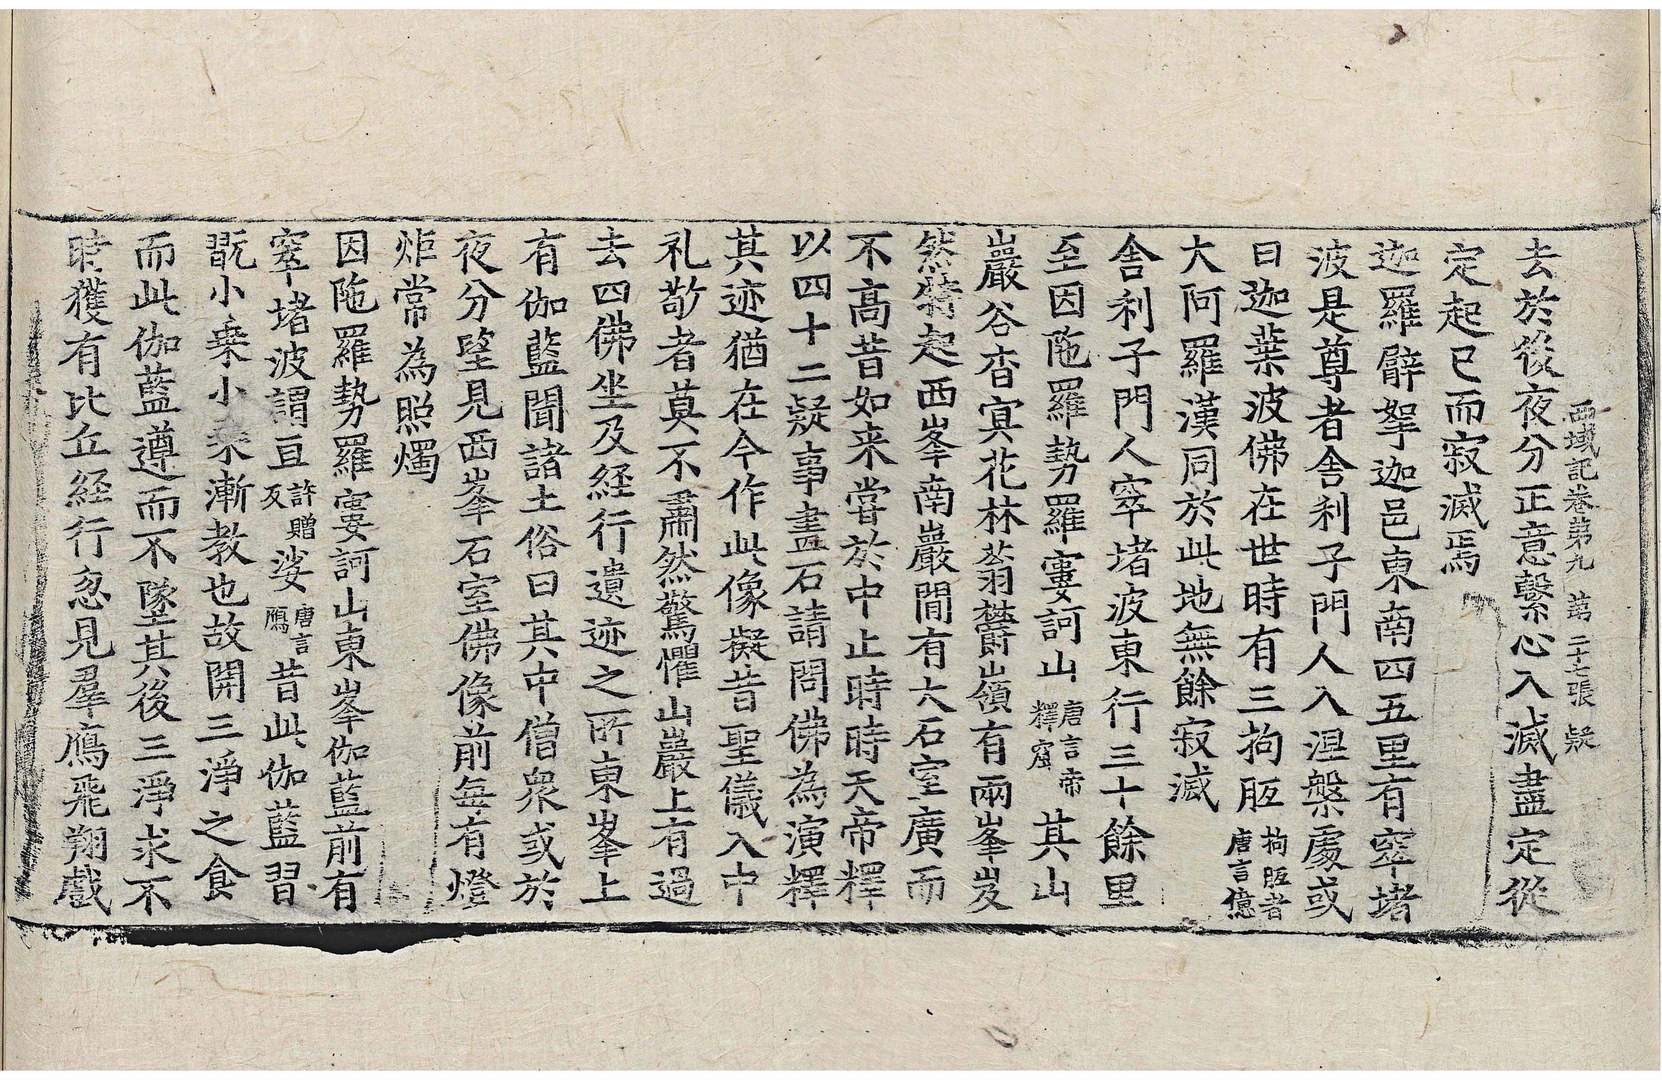 西域記卷第九 第二十七張 疑
去於後夜分正意繫心入滅盡定從
定起已而寂滅焉
迦羅臂拏迦邑東南四五里有窣堵
波是尊者舍利子門人入涅槃處或
曰迦葉波佛在世時有三拘胝拘胝者唐言億
大阿羅漢同於此地無餘寂滅
舍利子門人窣堵波東行三十餘里
至因陁羅勢羅窶訶山唐言帝釋窟其山
巖谷杳冥花林蓊欝嶺有兩峯岌
然特起西峯南巖間有大石室廣而
不高昔如来嘗於中止時時天帝釋
以四十二疑事畫石請問佛為演釋
其迹猶在今作此像擬昔聖儀入中
礼敬者莫不肅然驚懼山巖上有過
去四佛坐及経行遺迹之所東峯上
有伽藍聞諸土俗曰其中僧衆或於
夜分望見西峯石室佛像前每有燈
炬常為照燭
因陁羅勢羅窶訶山東峯伽藍前有
窣堵波謂亘許贈反娑唐言鴈昔此伽藍習
翫小乗小乗漸教也故開三淨之食
而此伽藍遵而不墜其後三淨求不
時獲有比丘経行忽見羣鴈飛翔戲